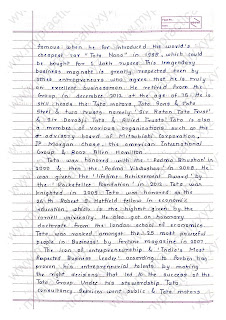 famous when he for introduced the world's
cheapest car "Tata Nano" in 1998, which could
be bought for 1 lakh rupees. This legendary
business magnate is greatly respected even by
other entrepreneurs who agree that he is truly
an excellent businessman. He retired from the
Group, in december 2012 at the age of 75. He is
still heads the Tata motors, Tata Sons & Tata
Steel & two trusts namely 'Sir Ratan Tata Trust'
& 'Sir Dorabji Tata & Allied Trusts'. Tata is also
a member of various organisations such as the
advisory board of Mitsubishi Corporation
JP Morgan chase, the american International
Group & Booz Allen Hamilton
Tata was honored with the 'Padma Bhushan' in
2000 & then the 'Padma Vibhushan' in 2008. He
was given the 'lifetime Achievement Award' by
the 'Rockefeller' foundation' in 2012. Tata was
knighted in 2009. Tata was honored as the
26th Robert S. Hatfield fellow in economic
education, which is the highest given by the
cornell university. He also got an honorary
doctorate from the london school of economics
Tata was ranked amongst the '25 most powerful
people in Business' by fortune magazine in 2007
The icon of entrepreneurship & 'India's Most
Respected Business Leader' according to forbes, has
proven his entrepreneurial talents by making
the right decisions that led to the success of the
Tata Group. Under his stewardship Tata
consultancy Services went public & Tata motors